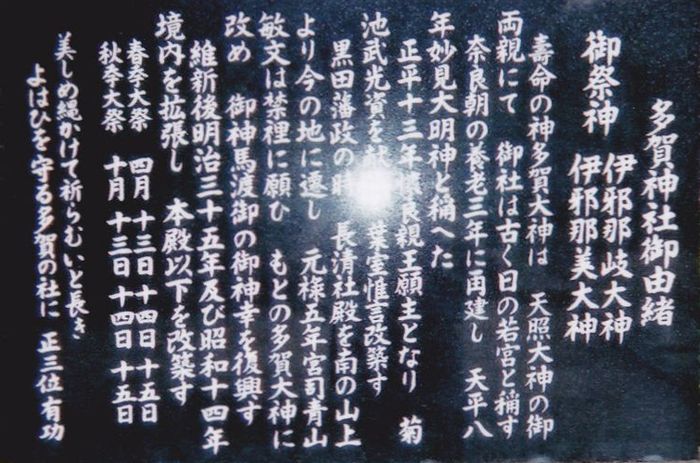 多賀神社御由緒
御祭神 伊邪那岐大神
伊邪那美大神
寿命の神多賀大神は 天照大神の御
両親にて 御社は古く日の若宮と稱す
奈良朝の養老三年に再建し 天平八
年妙見大明神と稱へた
正平十三年 良親王願主となり 菊
池武光資を献 葉室惟言改築す
黒田藩政の時 長清社殿を南の山上
より今の地に遷し 元禄五年宮司青山
敏文は禁裡に願ひ もとの多賀大神に
改め 御神馬渡御の御神幸を復興す
維新後明治三十五年及び昭和十四年
境内を拡張し 本殿以下を改築す
春季大祭 四月 十三日 十四日 十五日
秋季大祭 十月 十三日 十四日 十五日
美しめ縄かけて祈らむいと長き
よはひを守る多賀の社に 正三位有功